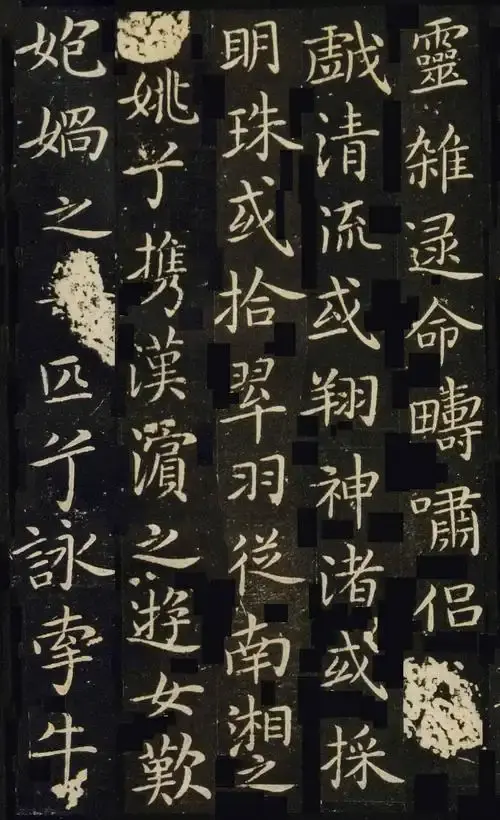 靈雑遝命疇嘯侶
戲清流或翔神渚或採
明珠或拾翆羽從南湘之
姚兮携漢濵之遊女歎
匏媧之匹兮詠牽牛